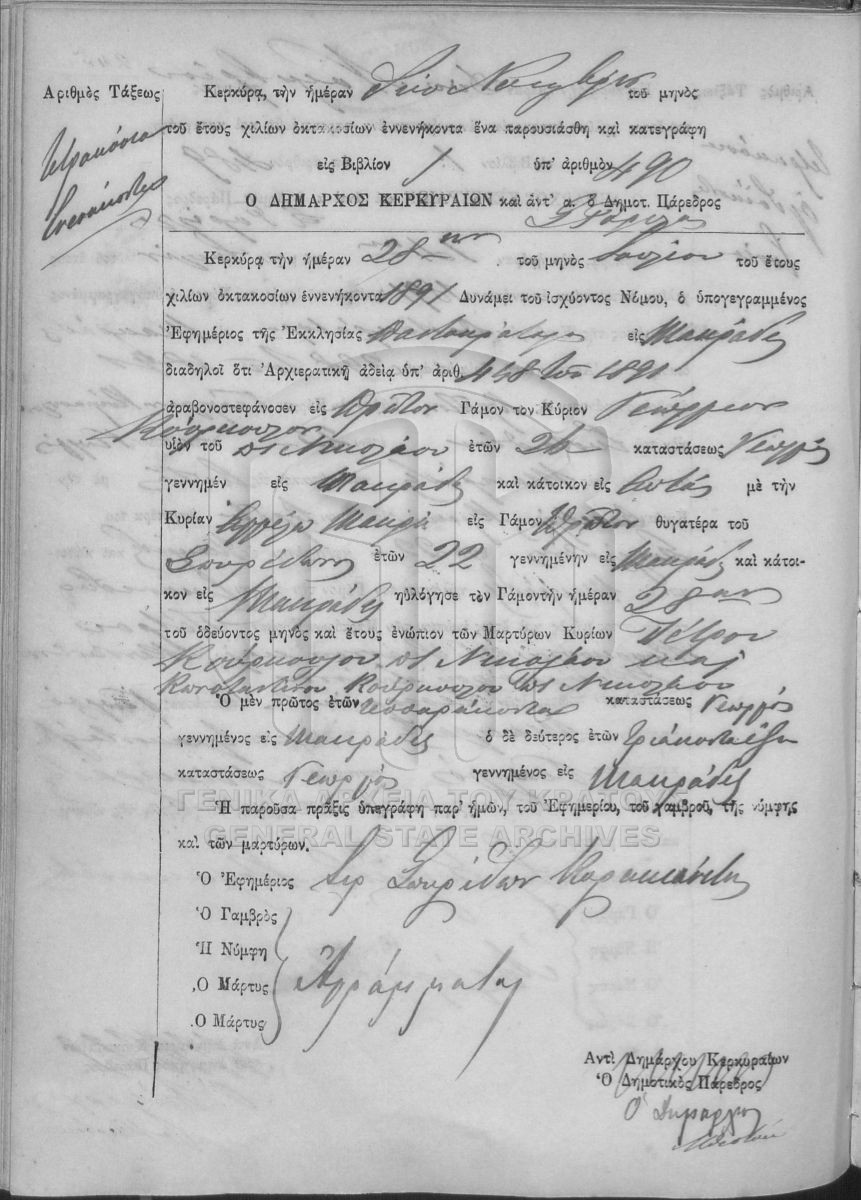 Ἀριθμὸς Τάξεως
Τετρακόσια
Ἐνενήκοντα
Κερκύρᾳ, τὴν ἡμέραν τοῦ μηνὸς
τοῦ ἔτους χιλίων ὀκτακοσίων ἐννενήκοντα ἕνα παρουσιάσθη καὶ κατεγράφη
εἰς Βιβλίον 1 ὑπ' ἀριθμὸν 490
Ο ΔΗΜΑΡΧΟΣ ΚΕΡΚΥΡΑΙΩΝ καὶ ἀντ' α. ὁ Δημοτ. Πάρεδρος
Κερκύρᾳ τὴν ἡμέραν 28ην τοῦ μηνὸς Ἰουλίου τοῦ ἔτους
χιλίων ὀκτακοσίων ἐννενήκοντα 1891 Δυνάμει τοῦ ἰσχύοντος Νόμου, ὁ ὑπογεγραμμένος
Ἐφημέριος τῆς Ἐκκλησίας Παντοκράτορος εἰς Μακράδες
διαδηλοῖ ὅτι Ἀρχιερατικῇ ἀδείᾳ ὑπ' ἀριθ. 448 τοῦ 1891
ἀραβονοστεφάνοσεν εἰς Πρῶτον Γάμον τὸν Κύριον Γεώργιον
Κούρκουλον
υἱὸν τοῦ πτ Νικολάου ἐτῶν 26 καταστάσεως Γεωργός
γεννημέν εἰς Μακράδες καὶ κάτοικον εἰς με τὴν
Κυρίαν Μακρῆ εἰς Γάμον Πρῶτον θυγατέρα τοῦ
Σπυρίδωνος ἐτῶν 22 γεννημένην εἰς Μακράδες καὶ κάτοι-
κον εἰς Μακράδες ηὐλόγησε τὸν Γάμον τὴν ἡμέραν 28ην
τοῦ ὁδεύοντος μηνὸς καὶ ἔτους ἐνώπιον τῶν Μαρτύρων Κυρίων Πέτρου
Κούρκουλου πτ Νικολάου καὶ
Κωνσταντίνου Κούρκουλου πτ Νικολάου
Ὁ μὲν πρῶτος ἐτῶν τεσσαράκοντα καταστάσεως Γεωργός
γεννημένος εἰς Μακράδες ὁ δὲ δεύτερος ἐτῶν τριάκονταέξ
καταστάσεως Γεωργός γεννημένος εἰς Μακράδες
ΓΕΝΙΚΑ ΑΡΧΕΙΑ ΤΟΥ ΚΡΑΤΟΥΣ
Ἡ παροῦσα πρᾶξις ὑπεγράφη παρ' ἡμῶν, τοῦ Ἐφημερίου, τοῦ γαμβροῦ, τῆς νύμφης
GENERAL STATE ARCHIVES
καὶ τῶν μαρτύρων.
Ὁ Ἐφημέριος Ἱερ Σπυρίδων
Ὁ Γαμβρὸς
Ἡ Νύμφη
Ὁ Μάρτυς Ἀγράμματοι
Ὁ Μάρτυς
Αντὶ Δημάρχου Κερκυραίων
Ὁ Δημοτικὸς Πάρεδρος
Ὁ Δήμαρχος